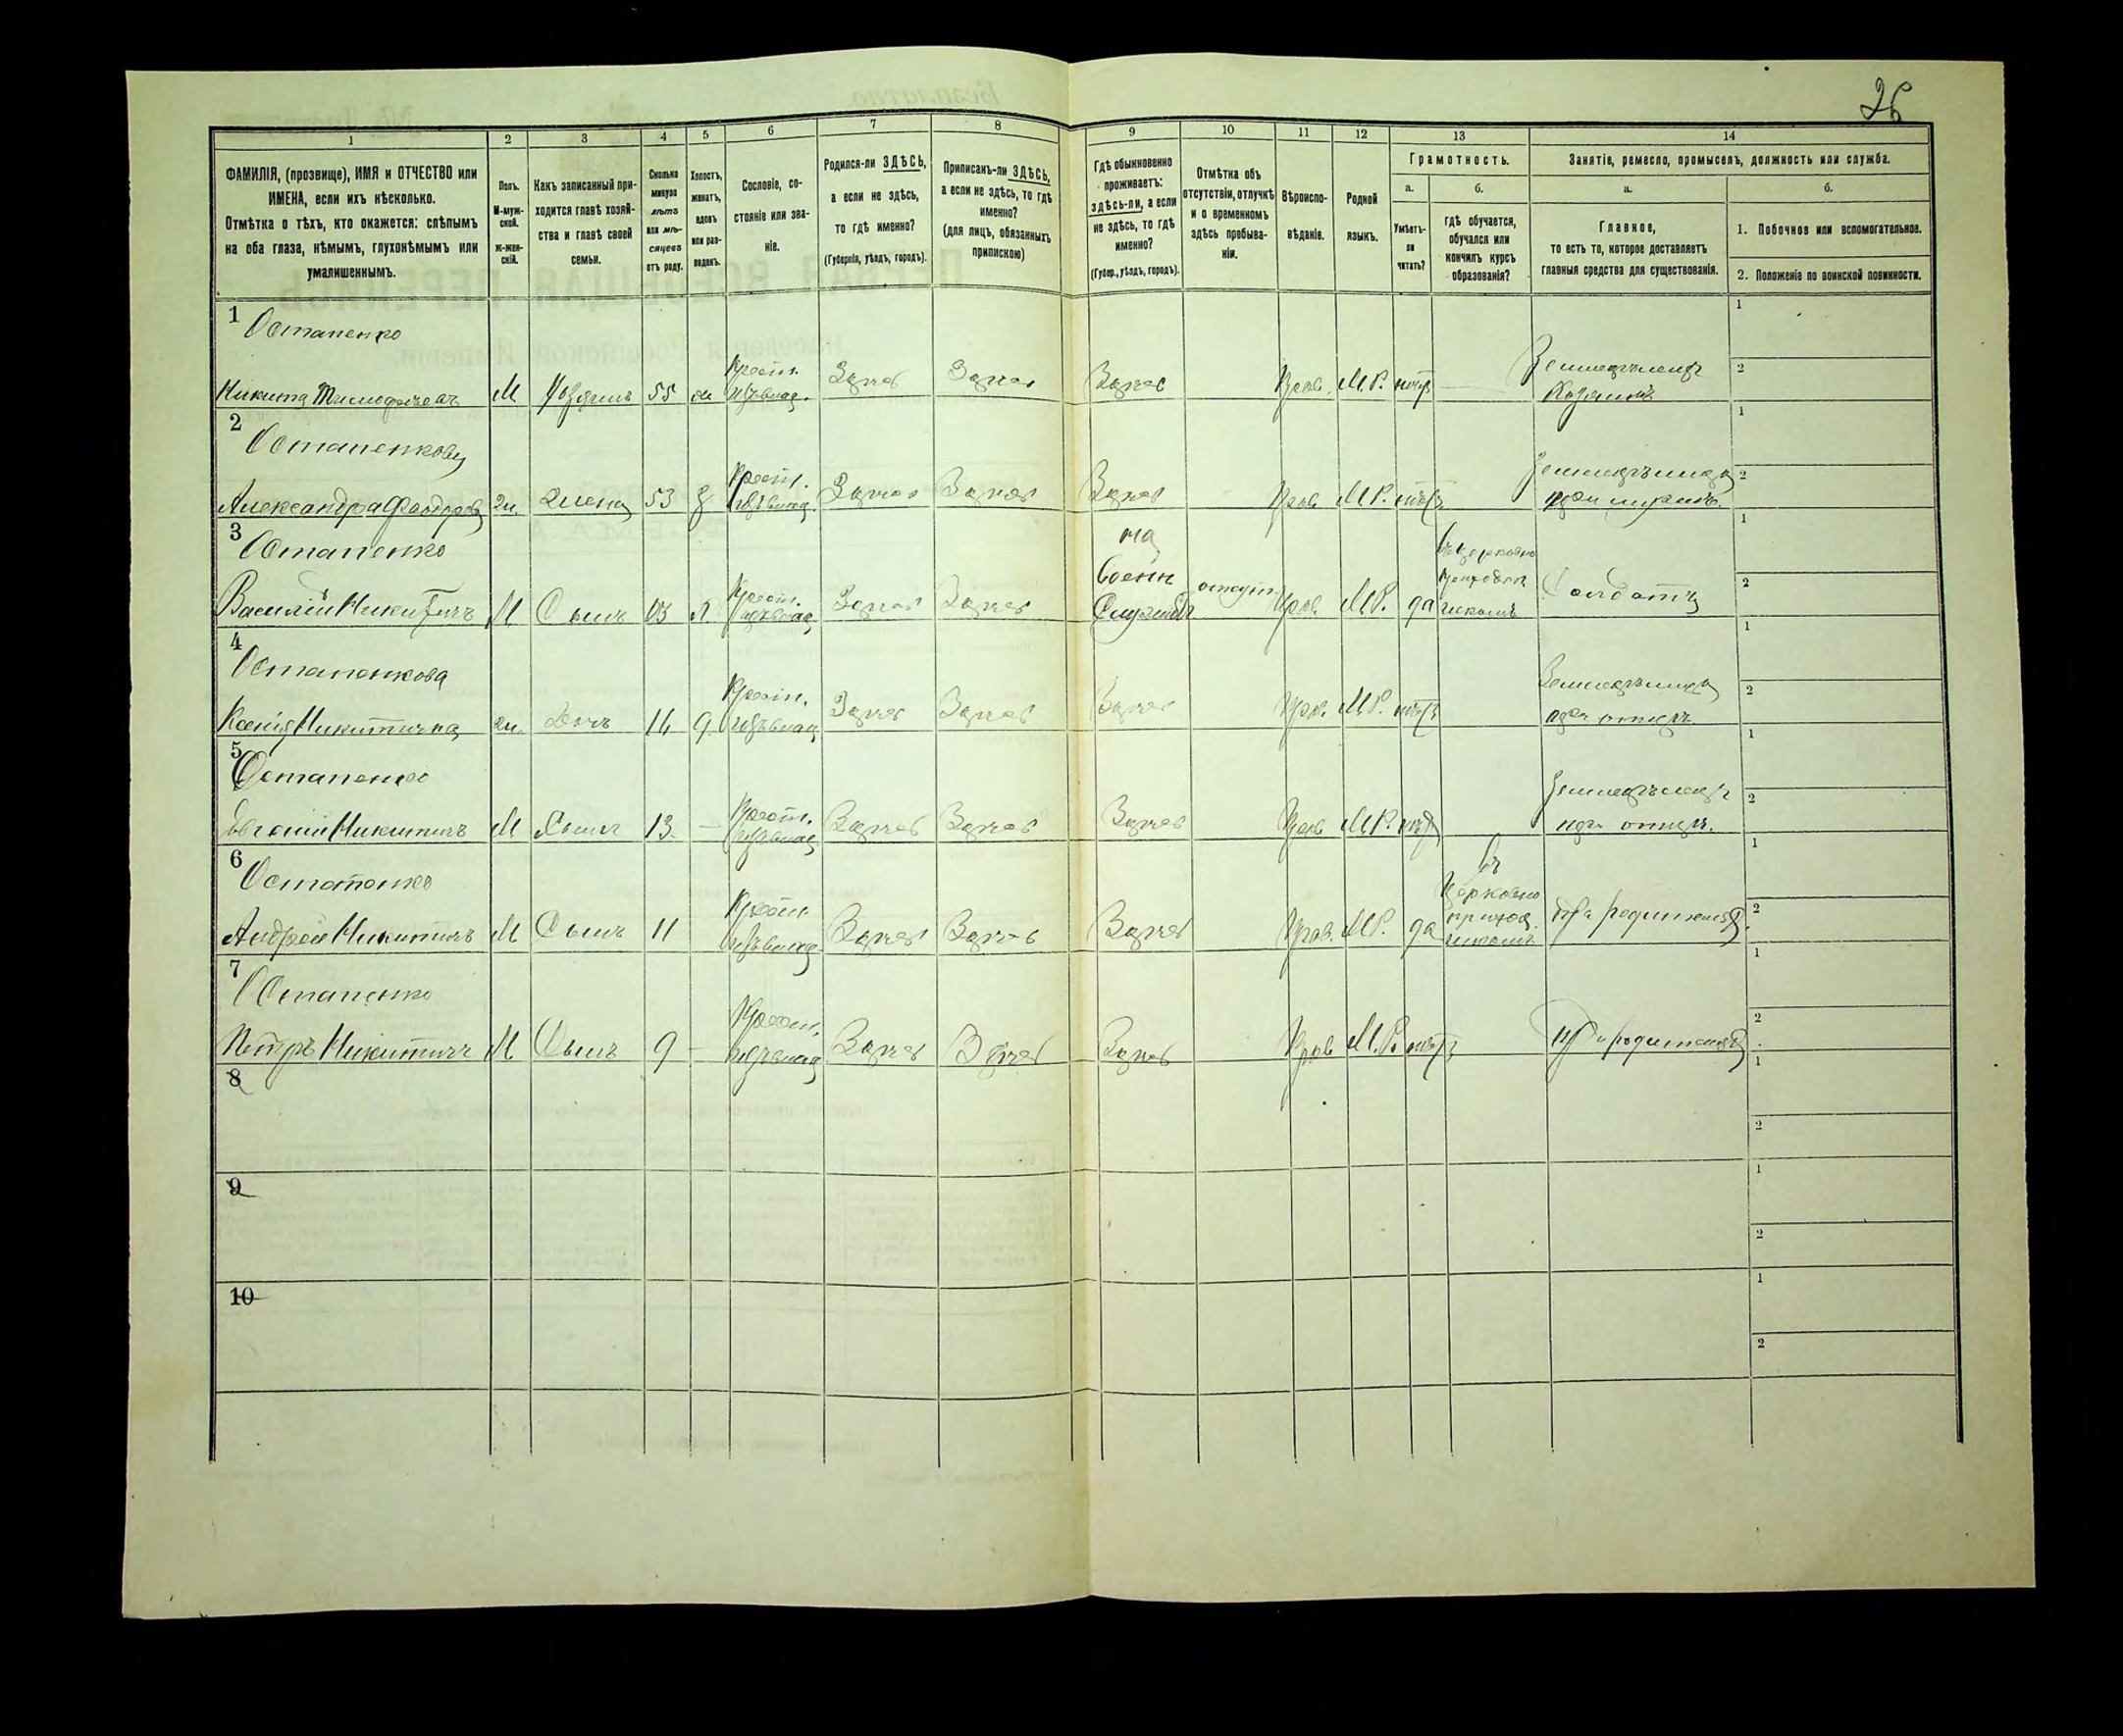 26
1
2
3
4
5
6
7
8
9
10
11
12
13
14
ФАМИЛІЯ, (прозвище), ИМЯ и ОТЧЕСТВО или
ИМЕНА, если ихъ нѣсколько.
Отмѣтка о тѣхъ, кто окажется: слѣпымъ
на оба глаза, нѣмымъ, глухонѣмымъ или
умалишеннымъ.
Полъ.
М-муж-
ской.
ж-жен-
скій.
Какъ записанный при-
ходится главѣ хозяй-
ства и главѣ своей
семьи.
Сколько
минуло
лѣтъ
или мѣ-
сяцевъ
отъ роду.
Холостъ,
женатъ,
вдовъ
или раз-
веденъ.
Сословіе, со-
стояніе или зва-
ніе.
Родился-ли ЗДѢСЬ,
а если не здѣсь,
то гдѣ именно?
(Губернія, уѣздъ, городъ).
Приписанъ-ли ЗДѢСЬ,
а если не здѣсь, то гдѣ
именно?
(для лицъ, обязанныхъ
припискою)
Гдѣ обыкновенно
проживаетъ:
здѣсь-ли, а если
не здѣсь, то гдѣ
именно?
(Губер., уѣздъ, городъ).
Отмѣтка объ
отсутствіи, отлучкѣ
и о временномъ
здѣсь пребыва-
ніи.
Вѣроиспо-
вѣданіе.
Родной
языкъ.
Грамотность.
а.
б.
Умѣетъ-
ли
читать?
гдѣ обучается,
обучался или
кончилъ курсъ
образованія?
Занятіе, ремесло, промыселъ, должность или служба.
а.
б.
Главное,
то есть то, которое доставляетъ
главныя средства для существованія.
1. Побочное или вспомогательное.
2. Положеніе по воинской повинности.
1 Остапенко 1
Крест. Земледѣлецъ 2
Никита Тимофѣевъ М Хозяинъ 55 ж Здѣсь Здѣсь Здѣсь Прав. М.Р. нѣтъ Хозяинъ
2 Остапенкова 1
Крест. 2
Александра ж. Жена 53 Здѣсь Здѣсь Здѣсь Прав М.Р. нѣтъ при мужѣ
3 Остапенко на Въ церковно 1
Крест. Военн приходск 2
Василій Никитичъ М Сынъ Х Здѣсь Здѣсь Службѣ отсут. Прав. М.Р. да школѣ Солдатъ
4 Остапенкова 1
Крест. 2
Ксенія Никитична ж. Дочь 14 Здѣсь Здѣсь Здѣсь Прав. М.Р. нѣтъ при отцѣ
5 Остапенко 1
Крест. Земледѣлецъ 2
Евгеній Никитичъ М Сынъ 13 — Здѣсь Здѣсь Здѣсь Прав М.Р. нѣтъ при отцѣ.
6 Остапенко въ 1
Крест. Церковно 2
Андрей Никитичъ М Сынъ 11 Здѣсь Здѣсь Здѣсь Прав. М.Р. да приход. школѣ при родителяхъ
7 Остапенко 1
Крест. 2
Петръ Никитичъ М Сынъ 9 — Здѣсь Здѣсь Здѣсь Прав М.Р. нѣтъ При родителяхъ
8 1
2
9 1
2
10 1
2